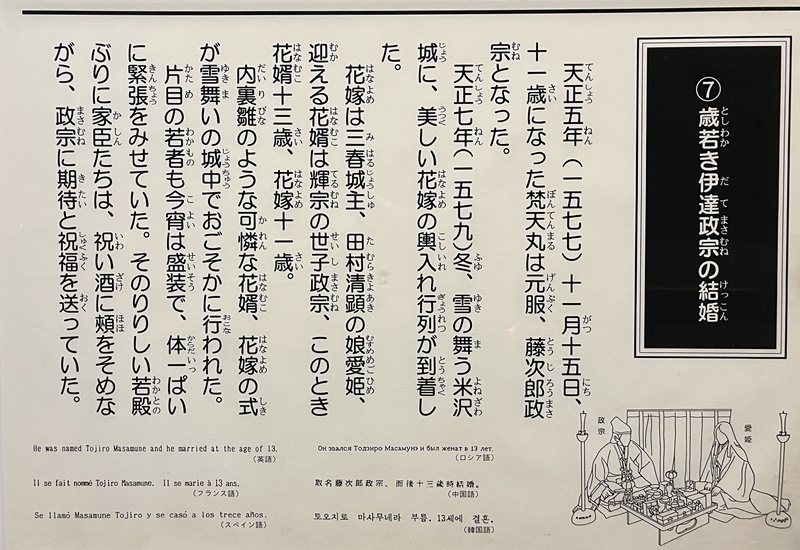 ⑦歳若き伊達政宗の結婚
天正五年(一五七七)十一月十五日、
十一歳になった梵天丸は元服、藤次郎政
宗となった。
天正七年(一五七九)冬、雪の舞う米沢
城に、美しい花嫁の輿入れ行列が到着し
た。
花嫁は三春城主、田村清顕の娘愛姫、
迎える花婿は輝宗の世子政宗、このとき
花婿十三歳、花嫁十一歳。
内裏雛のような可憐な花婿、花嫁の式
が雪舞いの城中でおごそかに行われた。
片目の若者も今宵は盛装で、体一ぱい
に緊張をみせていた。そのりりしい若殿
ぶりに家臣たちは、祝い酒に頰をそめな
がら、政宗に期待と祝福を送っていた。
政宗
愛姫
He was named Tojiro Masamune and he married at the age of 13.
(英語)
Il se fait nommé Tojiro Masamune. Il se marie à 13 ans.
(フランス語)
Se llamó Masamune Tojiro y se casó a los trece años.
(スペイン語)
Он звался Тодзиро Масамунэ и был женат в 13 лет.
(ロシア語)
取名藤次郎政宗、而後十三歳時結婚。
(中国語)
토오지로 마사무네라 부름. 13세에 결혼.
(韓国語)